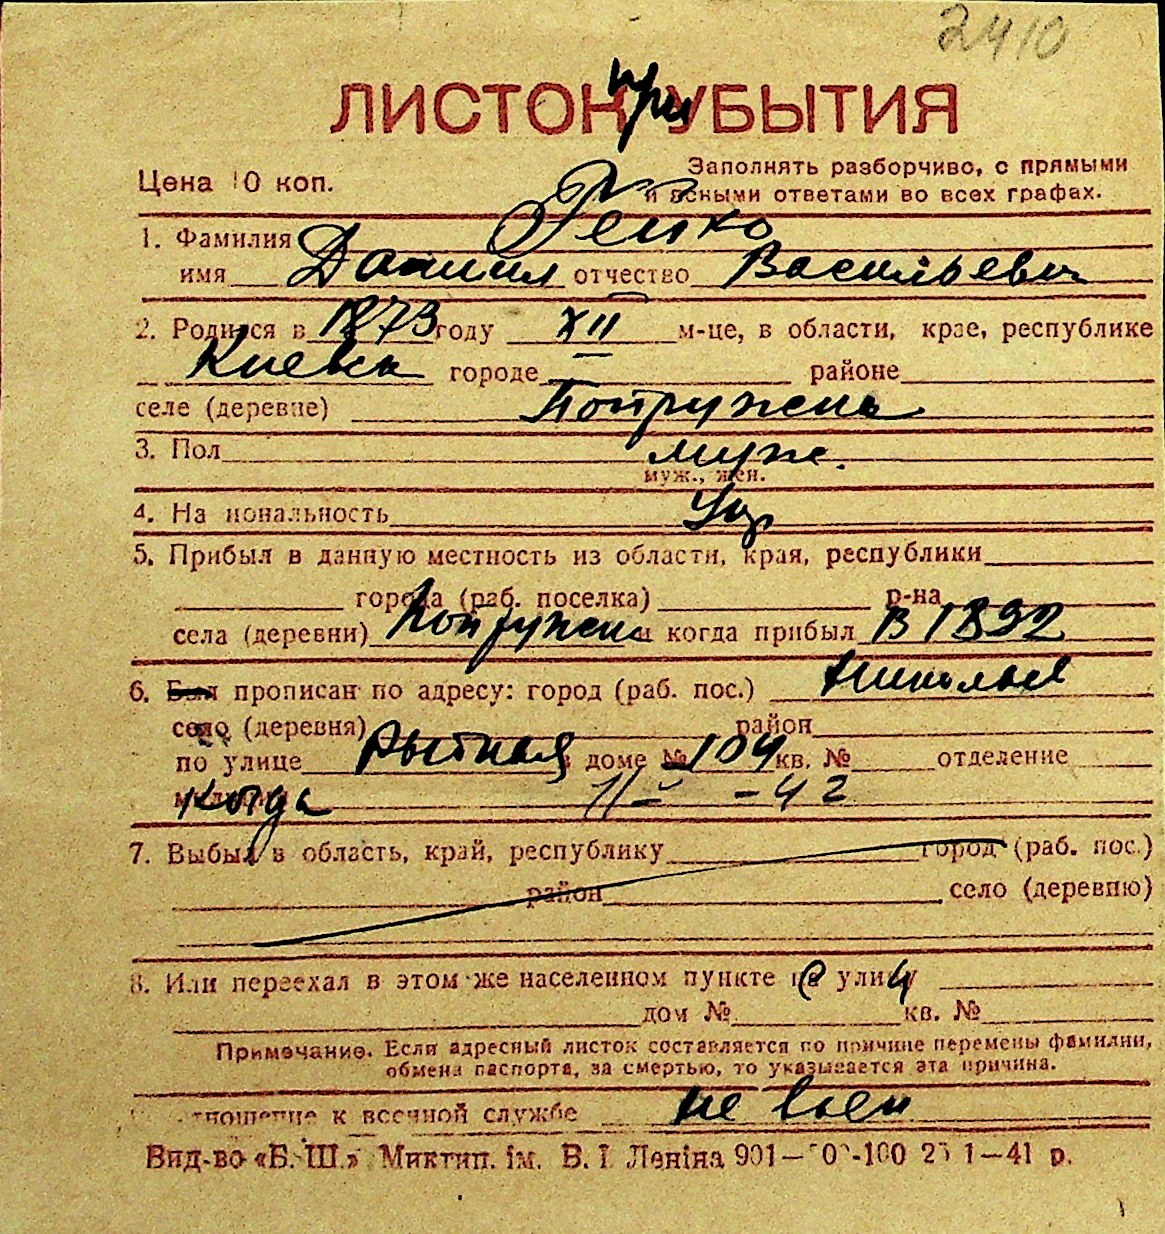 2410
ЛИСТОК при УБЫТИЯ
Цена 10 коп.
Заполнять разборчиво, с прямыми
и ясными ответами во всех графах.
1. Фамилия Репко
имя Даниил отчество Васильевич
2. Родился в 1873 году XII м-це, в области, крае, республике
Киевск городе — районе
селе (деревне)
3. Пол муж.
муж., жен.
4. Национальность Укр
5. Прибыл в данную местность из области, края, республики
города (раб. поселка) р-на
села (деревни) и когда прибыл в 1892
6. Был прописан по адресу: город (раб. пос.)
село (деревня) район
по улице в доме № 104 кв. № отделение
милиции Когда 11/I -42
7. Выбыл в область, край, республику город (раб. пос.)
район село (деревню)
8. Или переехал в этом же населенном пункте на улицу
дом № кв. №
Примечание. Если адресный листок составляется по причине перемены фамилии,
обмена паспорта, за смертью, то указывается эта причина.
Отношение к военной службе не воен
Вид-во «Б. Ш.» Миктип. ім. В. І. Леніна 901— -100 1—41 р.